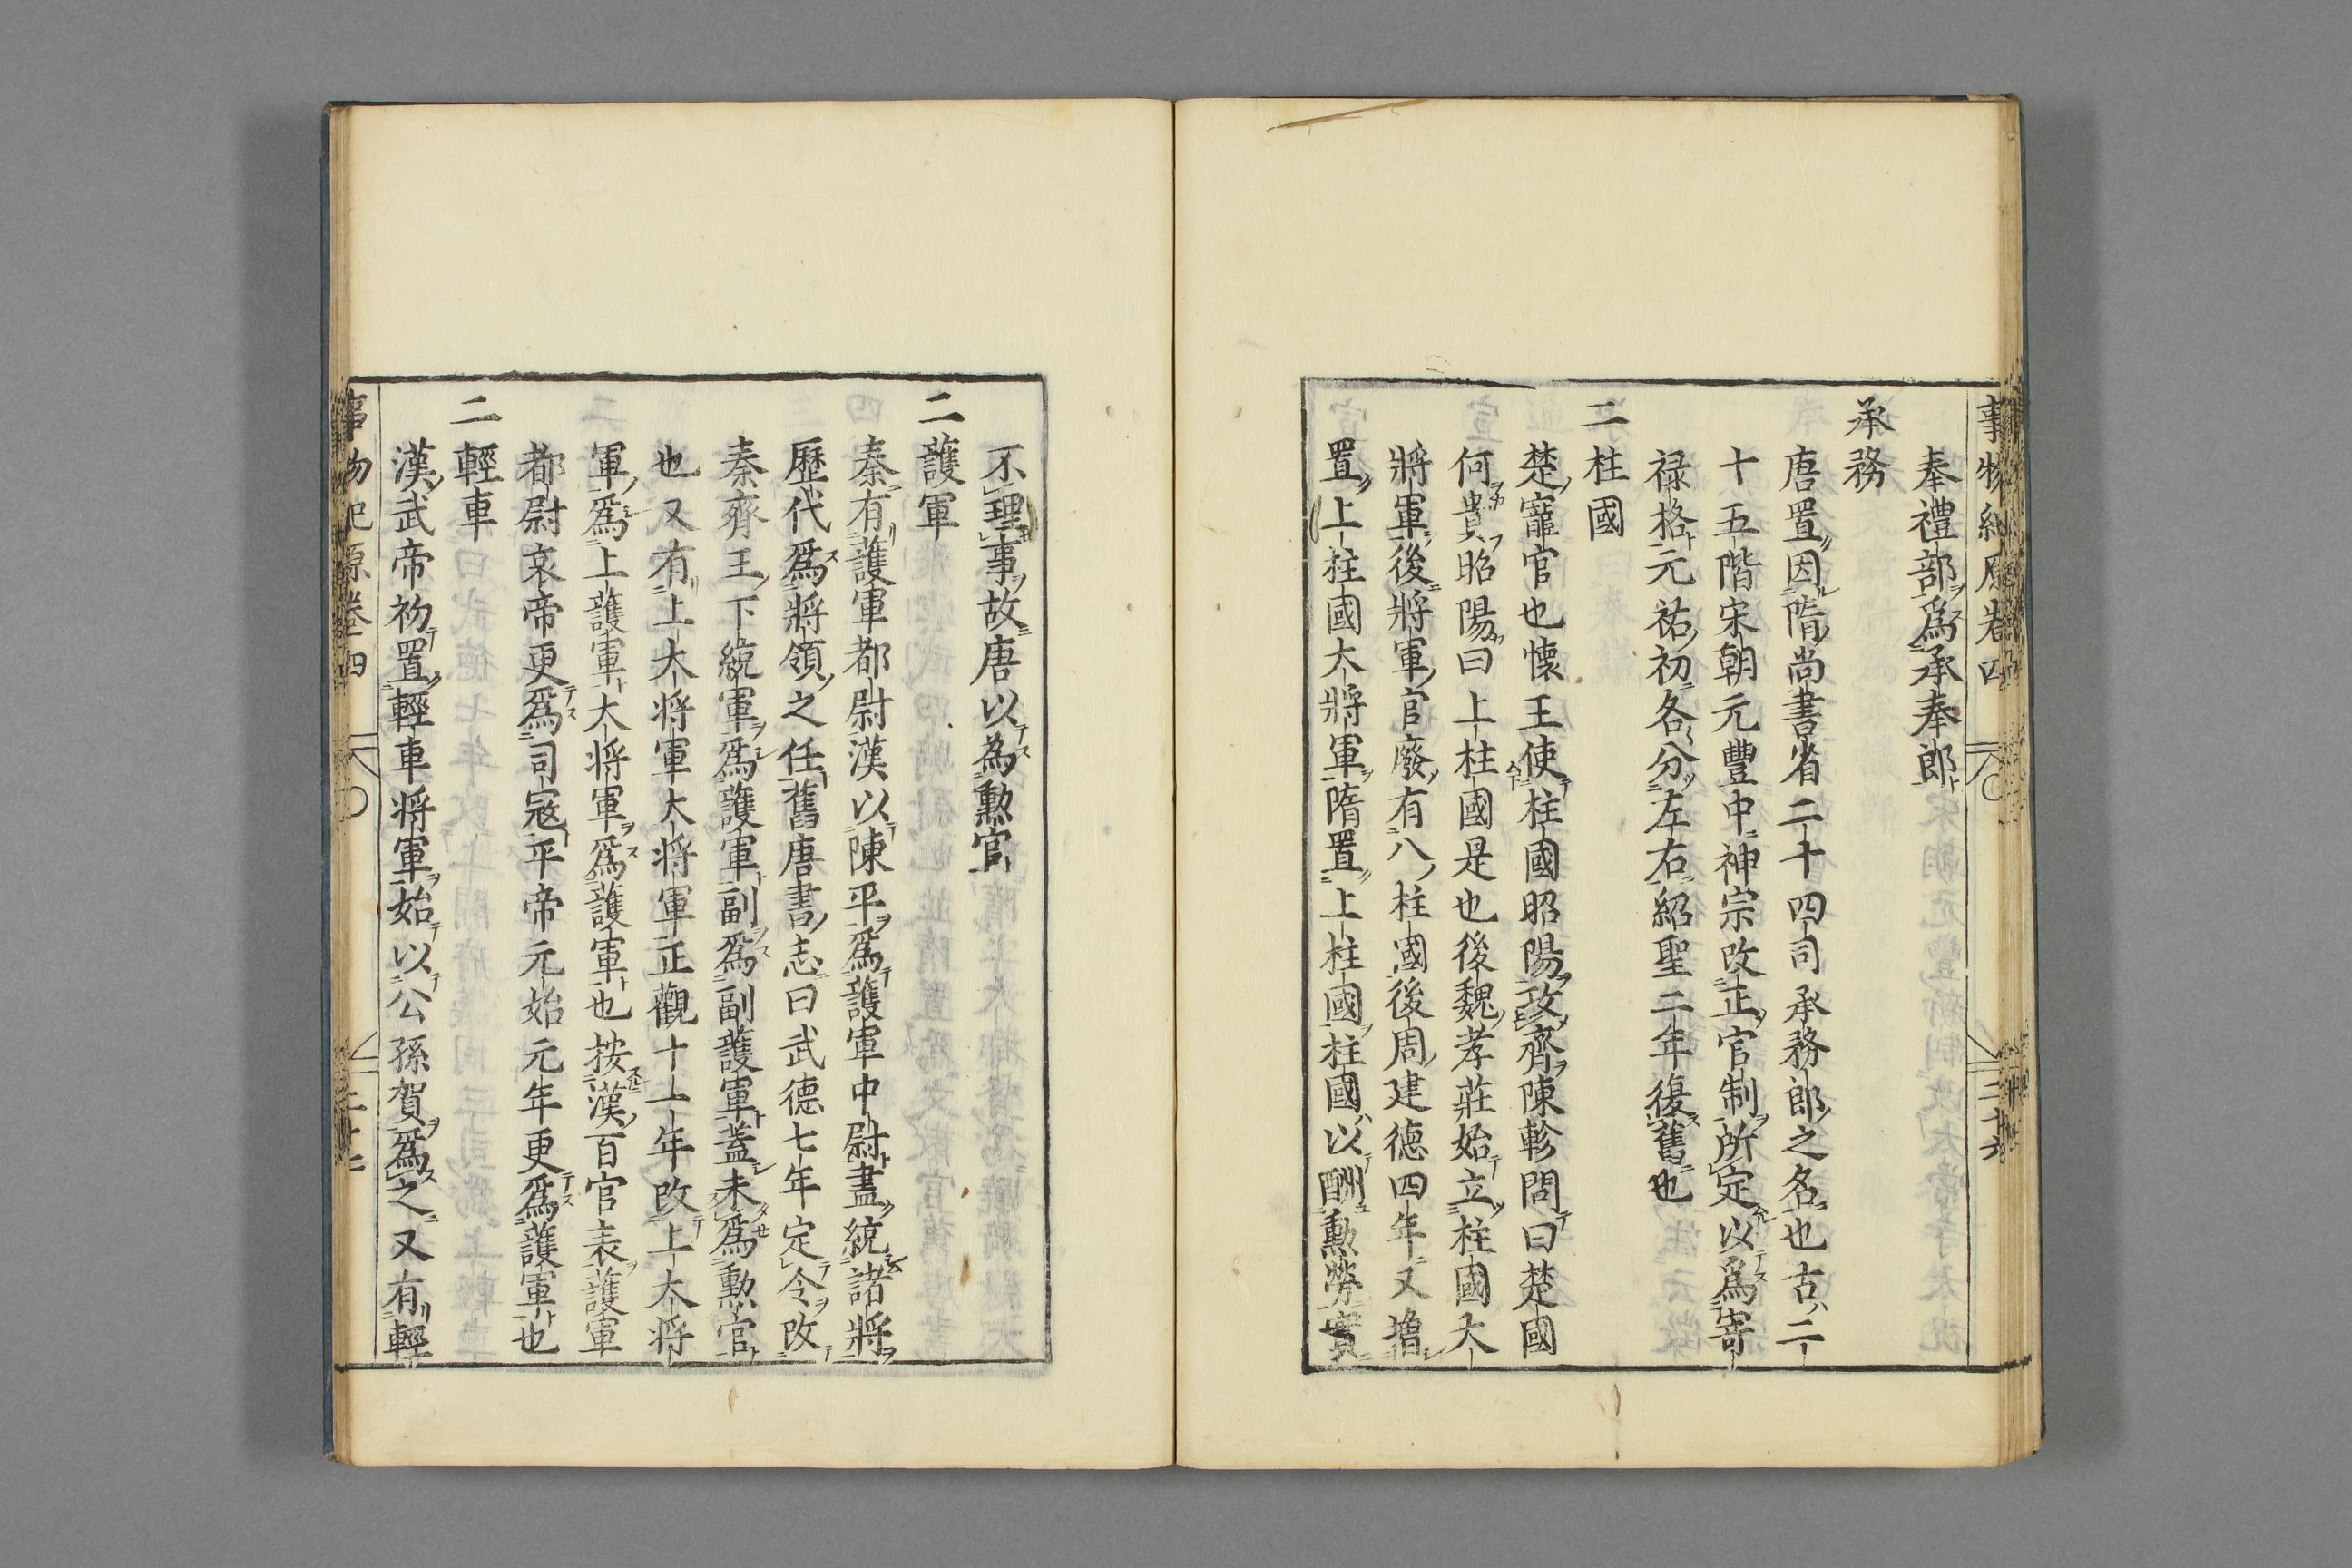 奉禮部為承奉郎
承務
唐置因隋尚書省二十四司承務郎之名也古二
十五階宋朝元豐中神宗改正官制所定以爲寄
禄格元祐初各分左右紹聖二年復舊也
二柱國
楚寵官也懷王使柱國昭陽攻齊陳軫問曰楚國
何貴昭陽曰上柱國是也後魏孝莊始立柱國大
將軍後將軍官廢有八柱國後周建德四年又増
置上柱國大將軍隋置上柱國柱國以酬勲勞實
不理事故唐以為勲官
二護軍
秦有護軍都尉漢以陳平爲護軍中尉盡統諸將
歷代爲將領之任舊唐書志曰武德七年定令改
秦齊王下統軍爲護軍副爲副護軍蓋未爲勲官
也又有上大将軍大将軍正觀十一年改上大将
軍爲上護軍大将軍爲護軍也按漢百官表護軍
都尉哀帝更爲司寇平帝元始元年更爲護軍也
二輕車
漢武帝初置輕車将軍始以公孫賀爲之又有輕